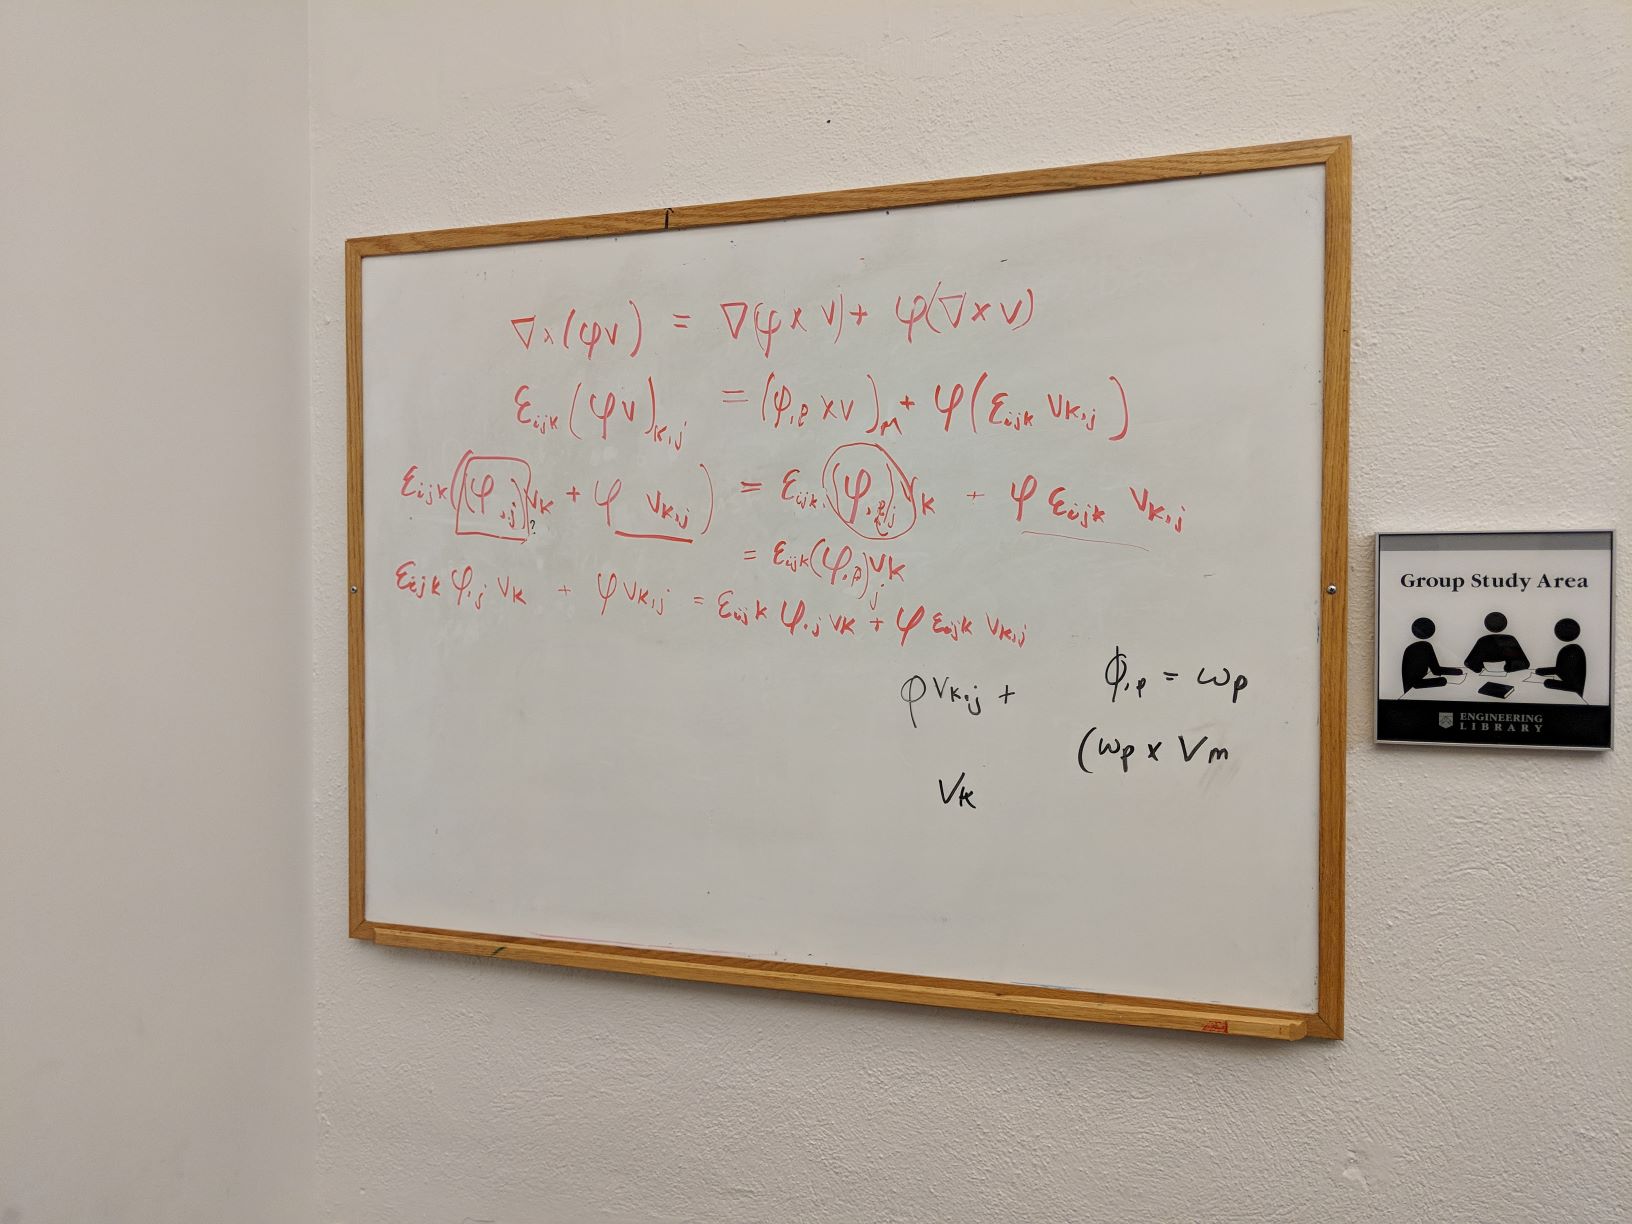 ∇×(φv) = ∇(φ × v) + φ(∇×v)
εijk (φv)k,j = (φ,p × v)m + φ(εijk vk,j)
εijk((φ,j)vk + φ vk,j) = εijk((φ,p),j vk + φ εijk vk,j
?
= εijk(φ,p)j vk
εijk φ,j vk + φ vk,j = εijk φ,j vk + φ εijk vk,j
φ vk,j +
ϕ,p = ωp
(ωp × Vm
Vk
Group Study Area
ENGINEERING
LIBRARY